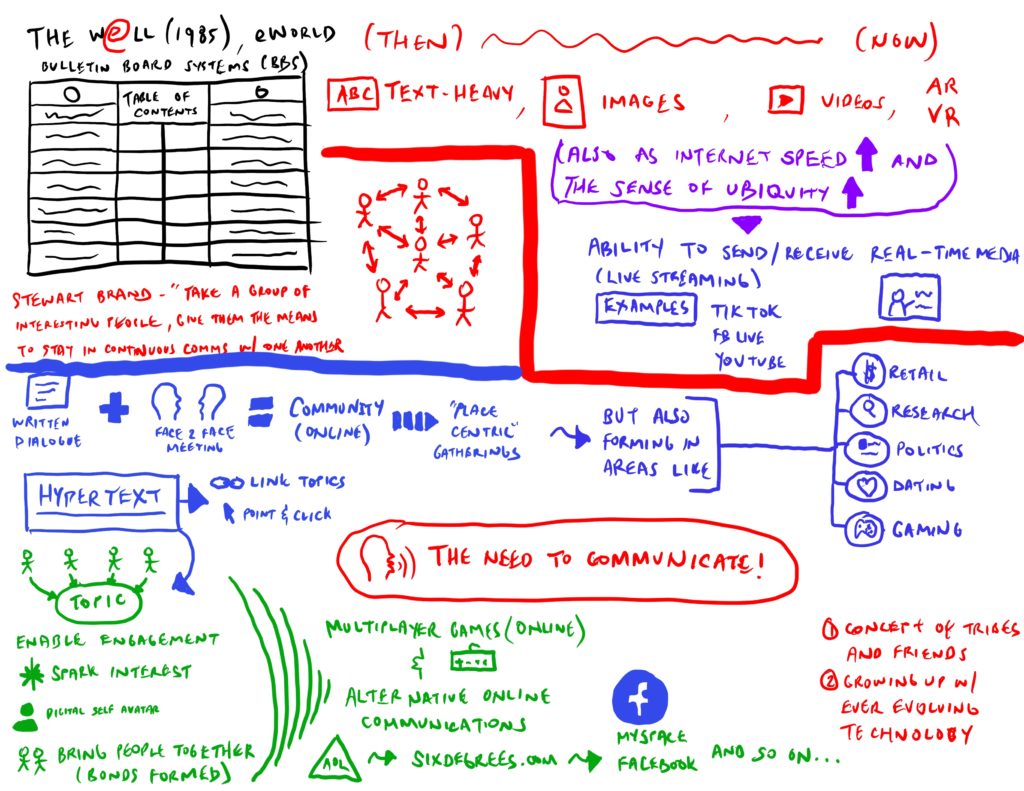 THE WELL (1985), eWORLD
BULLETIN BOARD SYSTEMS (BBS)
TABLE OF
CONTENTS
STEWART BRAND - "TAKE A GROUP OF
INTERESTING PEOPLE, GIVE THEM THE MEANS
TO STAY IN CONTINUOUS COMMS W/ ONE ANOTHER
(THEN)
(NOW)
ABC TEXT-HEAVY,
IMAGES,
VIDEOS,
AR
VR
(ALSO AS INTERNET SPEED AND
THE SENSE OF UBIQUITY)
ABILITY TO SEND/RECEIVE REAL-TIME MEDIA
(LIVE STREAMING)
EXAMPLES
TIKTOK
FB LIVE
YOUTUBE
WRITTEN
DIALOGUE
+
FACE 2 FACE
MEETING
=
COMMUNITY
(ONLINE)
"PLACE
CENTRIC"
GATHERINGS
BUT ALSO
FORMING IN
AREAS LIKE
$ RETAIL
RESEARCH
POLITICS
DATING
GAMING
HYPERTEXT
LINK TOPICS
POINT & CLICK
TOPIC
ENABLE ENGAGEMENT
SPARK INTEREST
DIGITAL SELF AVATAR
BRING PEOPLE TOGETHER
(BONDS FORMED)
THE NEED TO COMMUNICATE!
MULTIPLAYER GAMES (ONLINE)
&
ALTERNATIVE ONLINE
COMMUNICATIONS
AOL
SIXDEGREES.COM
f
MYSPACE
FACEBOOK
AND SO ON...
1 CONCEPT OF TRIBES
AND FRIENDS
2 GROWING UP W/
EVER EVOLVING
TECHNOLOGY